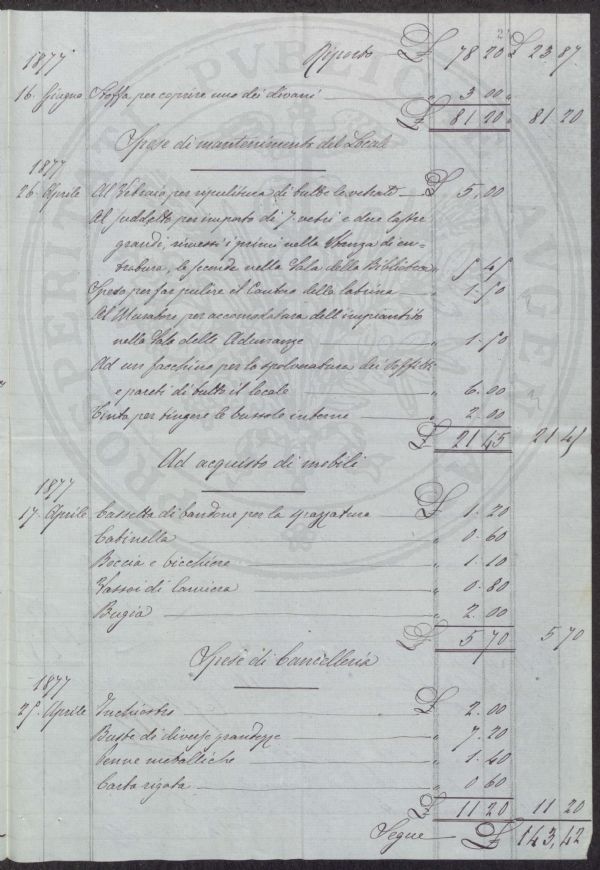 2
1877 Riporto £ 78 20 £ 23 87
16 Giugno Stoffa per coprire uno dei divani " 3 00 "
£ 81 20 " 81 20
Spese di mantenimento del Locale
1877
26 Aprile Al Vetraio per ripulitura di tutte le vetrate £ 5,00
Al suddetto per importo di 7 vetri e due lastre
grandi, rimessi i primi nella stanza di en-
tratura, le seconde nella Sala della Biblioteca " 5 45
Speso per far pulire il Cantero della latrina " 1.50
Al Muratore per accomodatura dell'impiantito
nella Sala delle Adunanze " 1.50
Ad un facchino per la spolveratura dei soffitti
e pareti di tutto il locale " 6.00
Tinta per tingere le bussole interne " 2.00
£ 21 45 21 45
Ad acquisto di mobili
1877
17 Aprile Cassetta di bandone per la spazzatura £ 1.20
Catinella " 0.60
Boccia e bicchiere " 1.10
Vassoi di lamiera " 0.80
Bugia " 2.00
£ 5 70 5 70
Spese di Cancelleria
1877
25 Aprile Inchiostro £ 2.00
Buste di diverse grandezze " 7.20
Penne metalliche " 1.40
Carta rigata " 0 60
£ 11 20 11 20
Segue £ 143,42
PROSPERITAT PUBLICAE AUGE